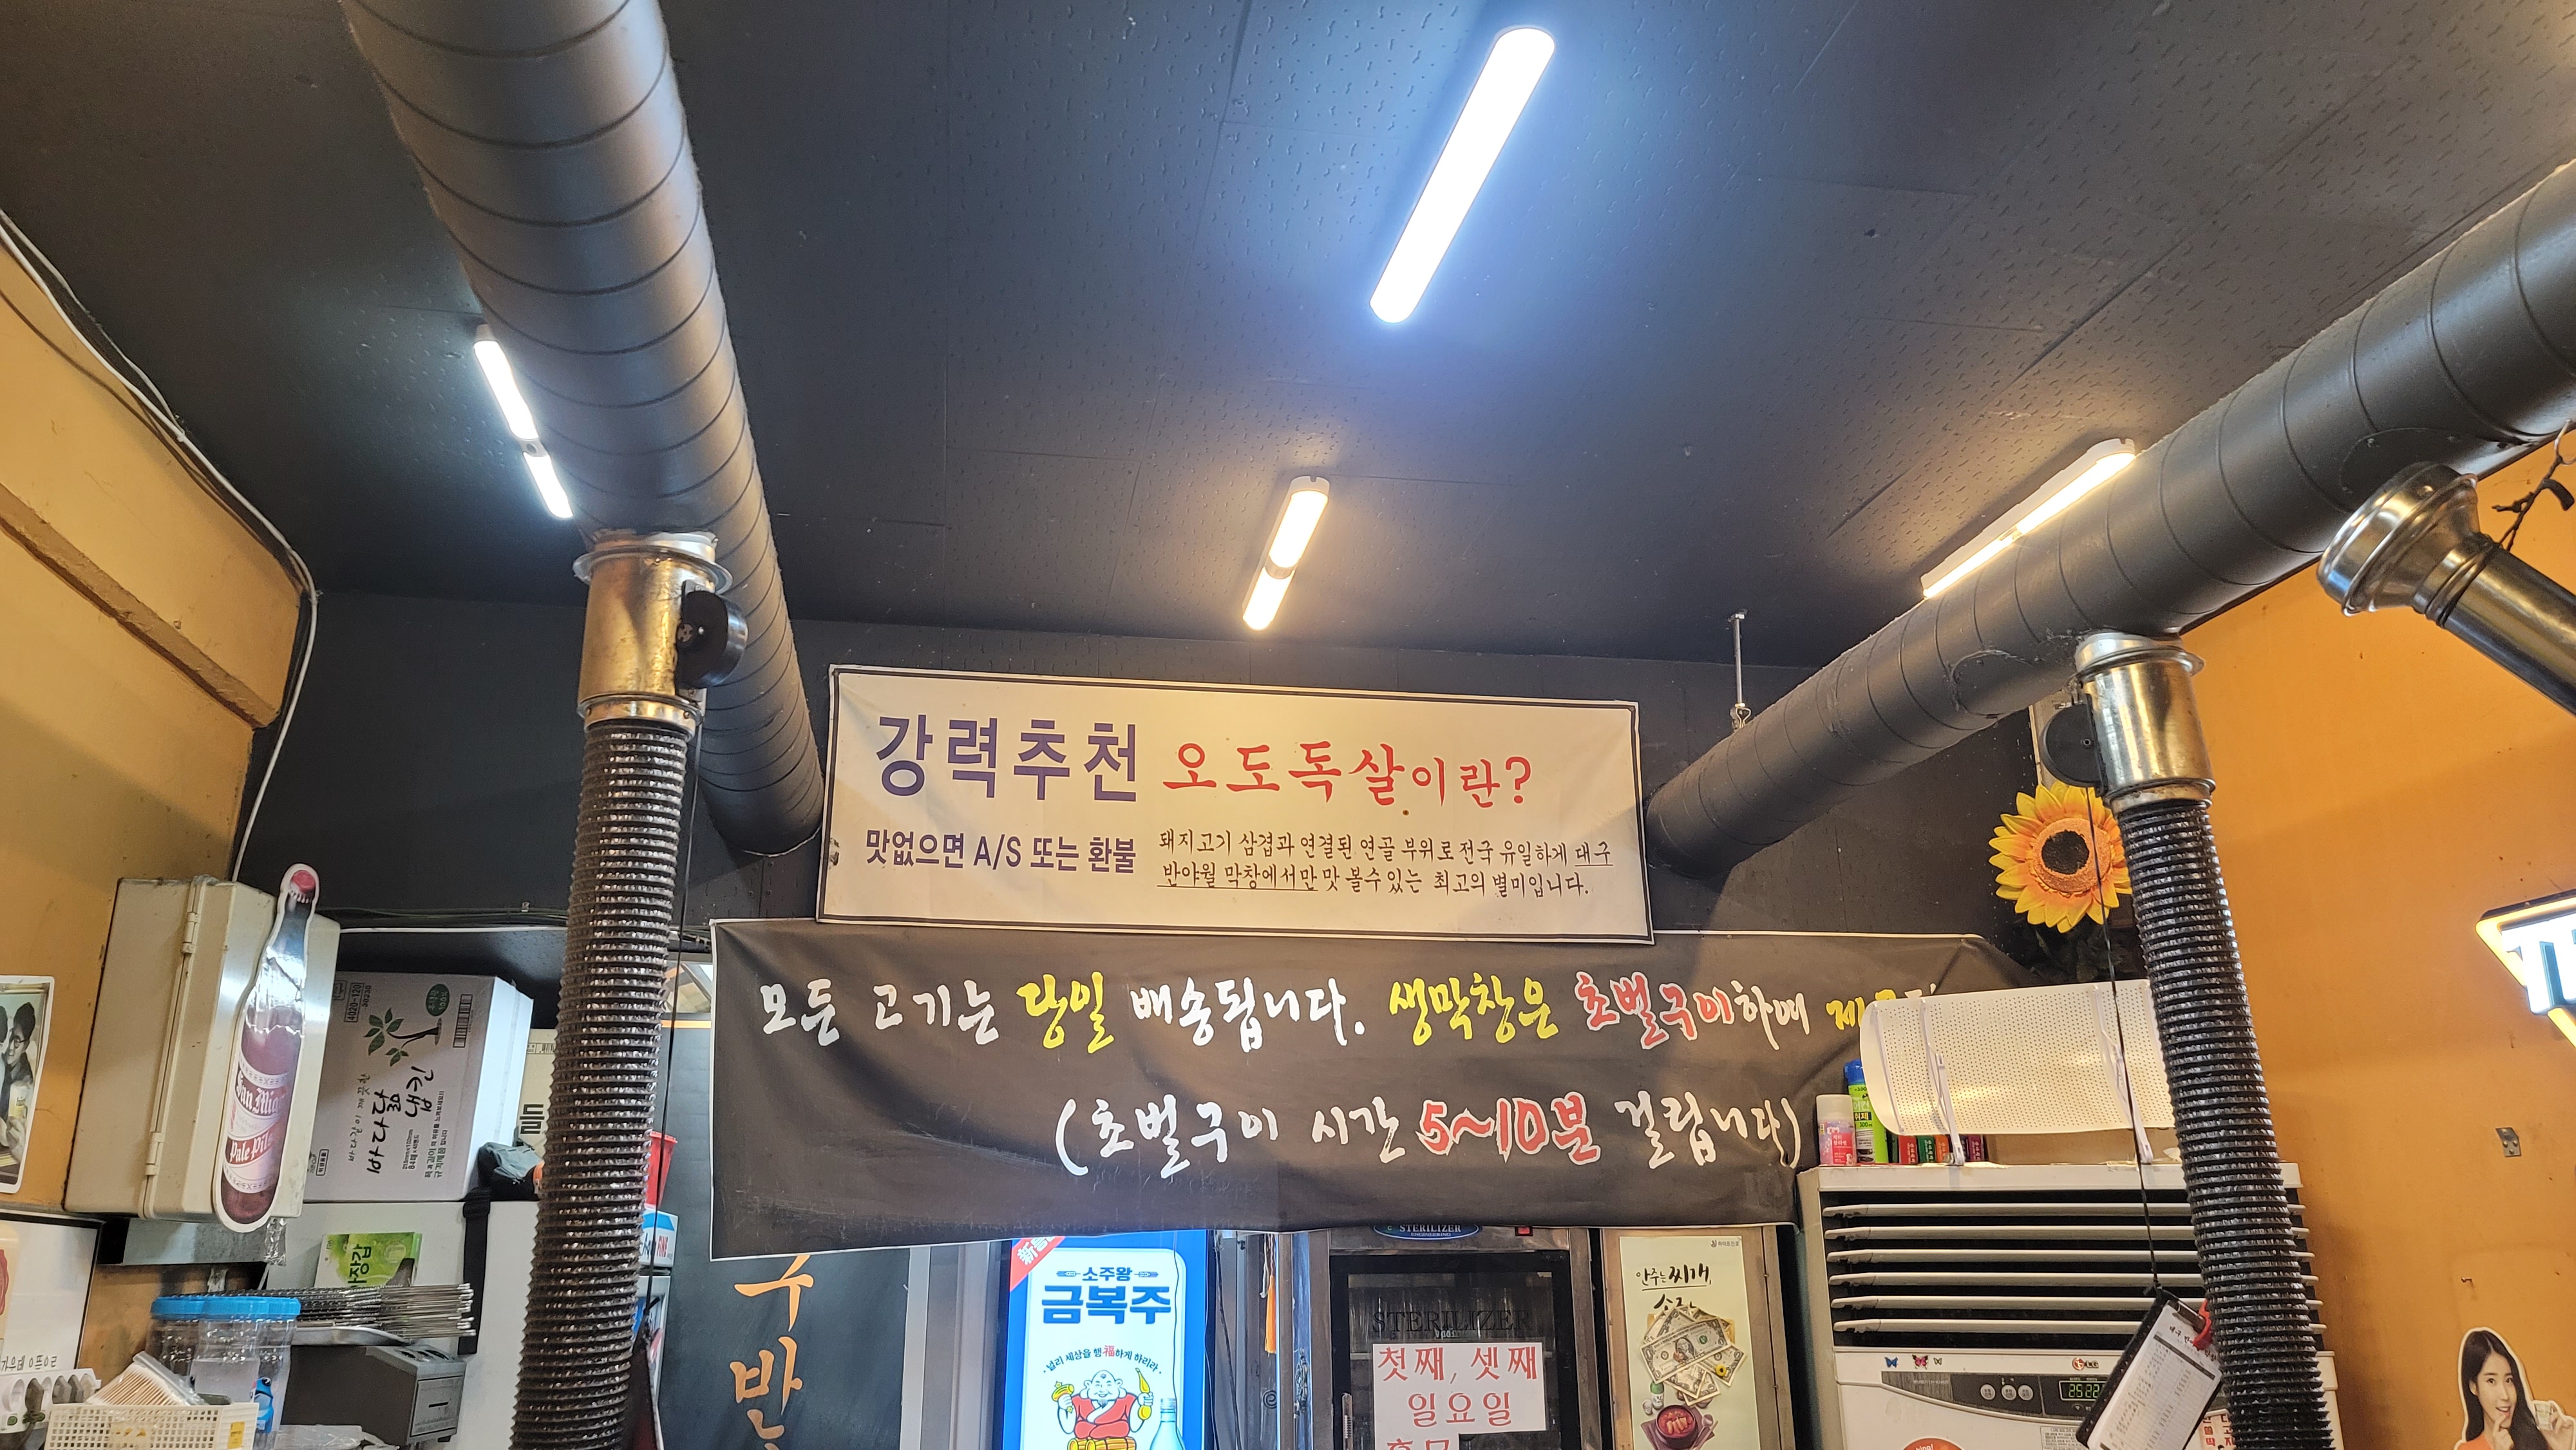 강력추천 오도독살이란?
맛없으면 A/S 또는 환불
돼지고기 삼겹과 연결된 연골 부위로 전국 유일하게 대구
반야월 막창에서만 맛 볼수 있는 최고의 별미입니다.
모든 고기는 당일 배송됩니다. 생막창은 초벌구이하여
(초벌구이 시간 5~10분 걸립니다)
바다담은
냅킨
4020-120
San Mig
Pale Pil
소주왕
금복주
널리 세상을 행福하게 하리라
STERILIZER
STERILIZER
첫째, 셋째
일요일
안주는 찌개,
하이트진로
구반